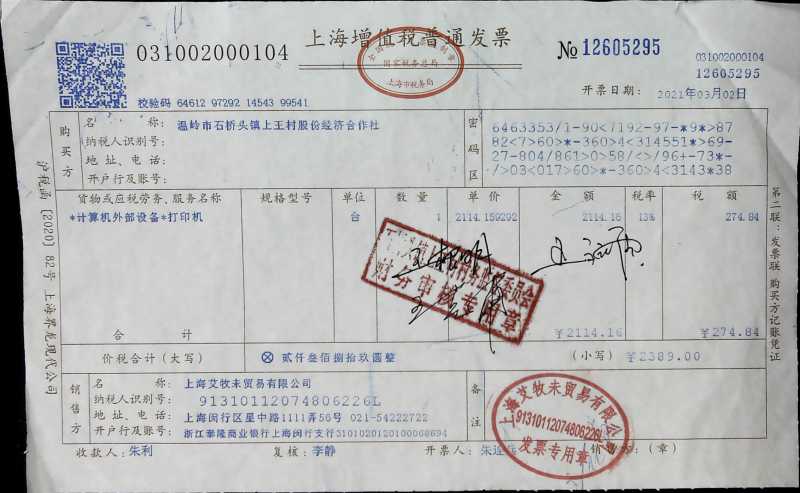 上海增值税普通发票
031002000104
№ 12605295
031002000104
12605295
全国统一发票监制章
国家税务总局
上海市税务局
校验码 64612 97292 14543 99541
开票日期: 2021年03月02日
购买方
名 称: 温岭市石桥头镇上王村股份经济合作社
纳税人识别号:
地址、电话:
开户行及账号:
密码区
6463353/1-90<7192-97-*9*>87
82<7>60>*-360>4<314551*>69-
27-804/861>0>58/<>/96+-73*-
/>03<017>60>*-360>4<3143*38
货物或应税劳务、服务名称 规格型号 单位 数量 单价 金额 税率 税额
*计算机外部设备*打印机 台 1 2114.159292 2114.16 13% 274.84
财务审核专用章
合计 ¥2114.16 ¥274.84
价税合计(大写) ⊗ 贰仟叁佰捌拾玖圆整 (小写) ¥2389.00
销售方
名 称: 上海艾牧未贸易有限公司
纳税人识别号: 91310112074806226L
地址、电话: 上海闵行区星中路1111弄56号 021-54222722
开户行及账号: 浙江泰隆商业银行上海闵行支行3101020120100068694
备注
上海艾牧未贸易有限公司
91310112074806226L
发票专用章
收款人: 朱利 复核: 李静 开票人: 销售方:(章)
沪税函[2020]82号 上海界龙现代公司
第二联:发票联 购买方记账凭证